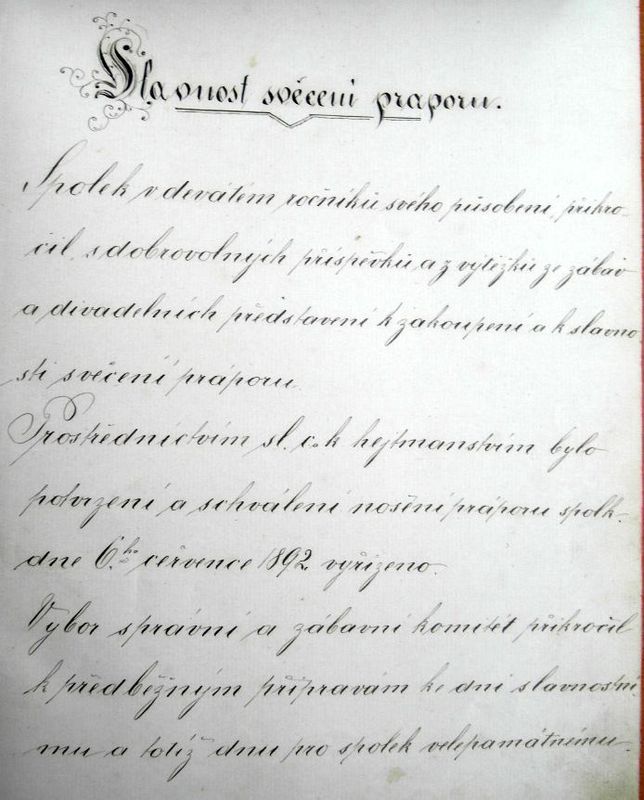 Slavnost svěcení praporu.
Spolek v devátém ročníku svého působení, přikro-
čil, z dobrovolných příspěvků, a z výtěžku ze zábav
a divadelních představení k zakoupení a k slavno-
sti svěcení práporu.
Prostřednictvím sl. c. k. hejtmanstvím bylo
potvrzení a schválení nošění práporu spolk.
dne 6.ho července 1892 vyřízeno.
Výbor správní a zábavní komitét přikročil
k předběžným přípravám ke dni slavnostní-
mu a totiž dnu pro spolek velepamátnému